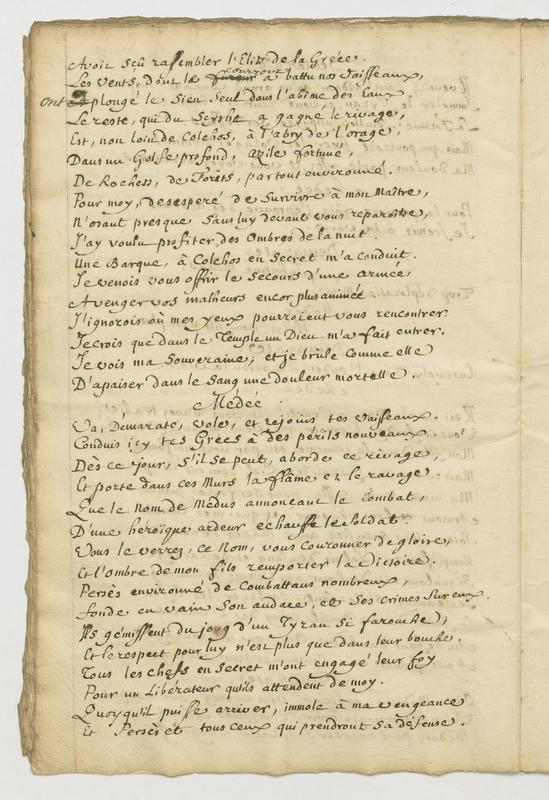 Avoit sçû rassembler l'Elite de la Gréce.
Les Vents, dont le courroux a battu nos Vaisseaux,
ont plongé le Sien Seul dans l'abîme des Eaux.
Le reste, qui du Scythe a gagné le rivage,
Est, non loin de Colchos, à l'abry de l'orage,
Dans un Golfe profond, azile fortuné,
De Rochers, de Forêts, partout environné.
Pour moy, desesperé de Survivre à mon Maître,
N'osant presque Sans luy devant vous reparoître,
J'ay voulu profiter des Ombres de la nuit.
Une Barque, à Colchos en Secret m'a conduit.
Je venois vous offrir le Secours d'une armée,
A venger vos malheurs encor plus animée.
J'ignorois où mes yeux pourroient vous rencontrer.
Je crois que dans le Temple un Dieu m'a fait entrer.
Je vois ma Souveraine, et je brûle Comme elle
D'apaiser dans le Sang une douleur mortelle.
Medée.
Va, Démarate, vole, et rejoins tes Vaisseaux.
Conduis icy tes Grecs à des périls nouveaux.
Dès ce jour, s'il se peut, aborde ce rivage,
Et porte dans ces Murs la flâme et le ravage.
Que le Nom de Médus annonçant le Combat,
D'une heroïque ardeur échauffe le Soldat.
Vous le verrez, ce Nom, vous Couronner de gloire,
Et l'ombre de mon fils remporter la Victoire.
Persès environné de Combattans nombreux,
fonde en vain Son audace, et Ses Crimes Sur eux.
Ils gémissent du joug d'un Tyran Si farouche,
Et le respect pour luy n'est plus que dans leur bouche.
Tous les chefs en Secret m'ont engagé leur foy
Pour un Libérateur qu'ils attendent de moy.
Quoyqu'il puisse arriver, immole à ma vengeance
Et Persès et tous ceux qui prendront Sa défense.